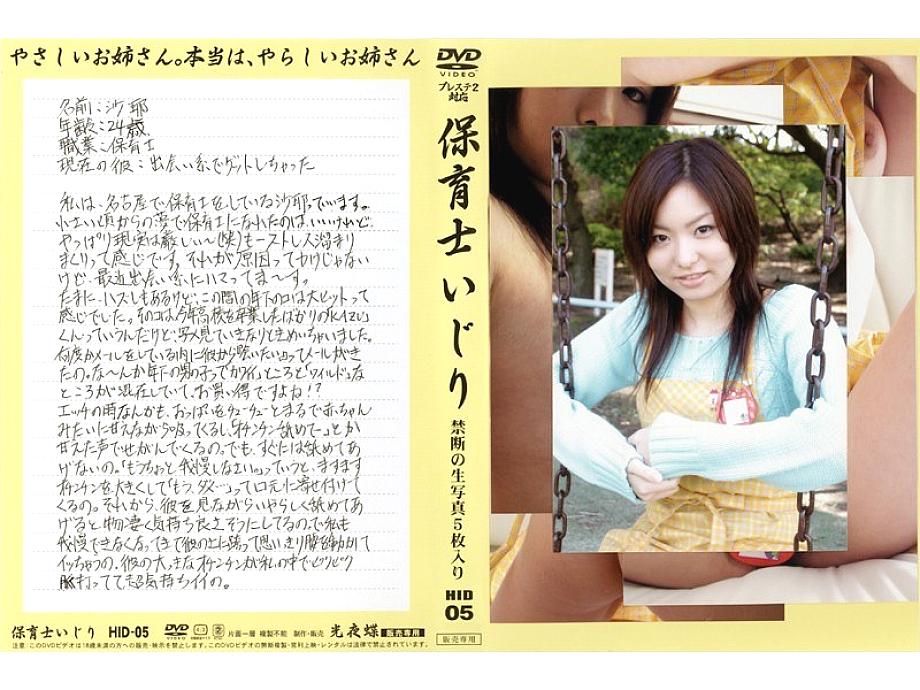 やさしいお姉さん。本当は、やらしいお姉さん
名前:沙耶
年齢:24歳
職業:保育士
現在の彼:出会い系でゲットしちゃった
私は、名古屋で保育士をしている沙耶でいます。
小さい頃からの夢で保育士になれたのは、いいけれど、
やっぱり現実は厳しい〜(笑)もーストレス溜まり
まくりって感じです。それが原因ってわけじゃない
けど、最近出会い系にハマってま〜す。
たまに、ハズレもあるけど、この間の年下のコは大ヒットって
感じでした。そのコは今年高校を卒業したばかりの
くんっていうんだけど、写メ見ていきなりときめいちゃいました。
何度かメールをしている内に彼から会いたいってメールがき
たの。な〜んか年下の男の子って"カワイイ"ところと"ワイルド"な
ところが混在していて、お買い得ですよね!?
エッチの時なんかも、おっぱいをチューチューとまるで赤ちゃん
みたいに甘えながら吸ってくるし、「オチンチン舐めて〜」とか
甘えた声でせがんでくるの。でも、すぐには舐めてあ
げないの。「もうちょっと我慢しなさい。」っていうと、ますます
オチンチンを大きくして「もう、ダメ…」って口元に寄せ付けて
くるの。それから、彼を見ながらいやらしく舐めてあ
げると、物凄く気持ち良さそうにしてるので私も
我慢できなくなってきて彼の上に跨って思いきり腰を動かして
イッちゃうの、彼の大きなオチンチンが私の中でビクビク
脈打ってて超気持ちイイの。
保育士いじり HID-05 DVD VIDEO 片面一層 複製不能 制作・販売 光夜蝶 販売専用
注意:このDVDビデオは18歳未満の方への販売・映示を禁止します。このDVDビデオの無断複製・営利上映・レンタルは法律で禁止されています。
DVD
VIDEO
プレステ2
対応
保育士いじり
禁断の生写真5枚入り
HID
05
販売専用